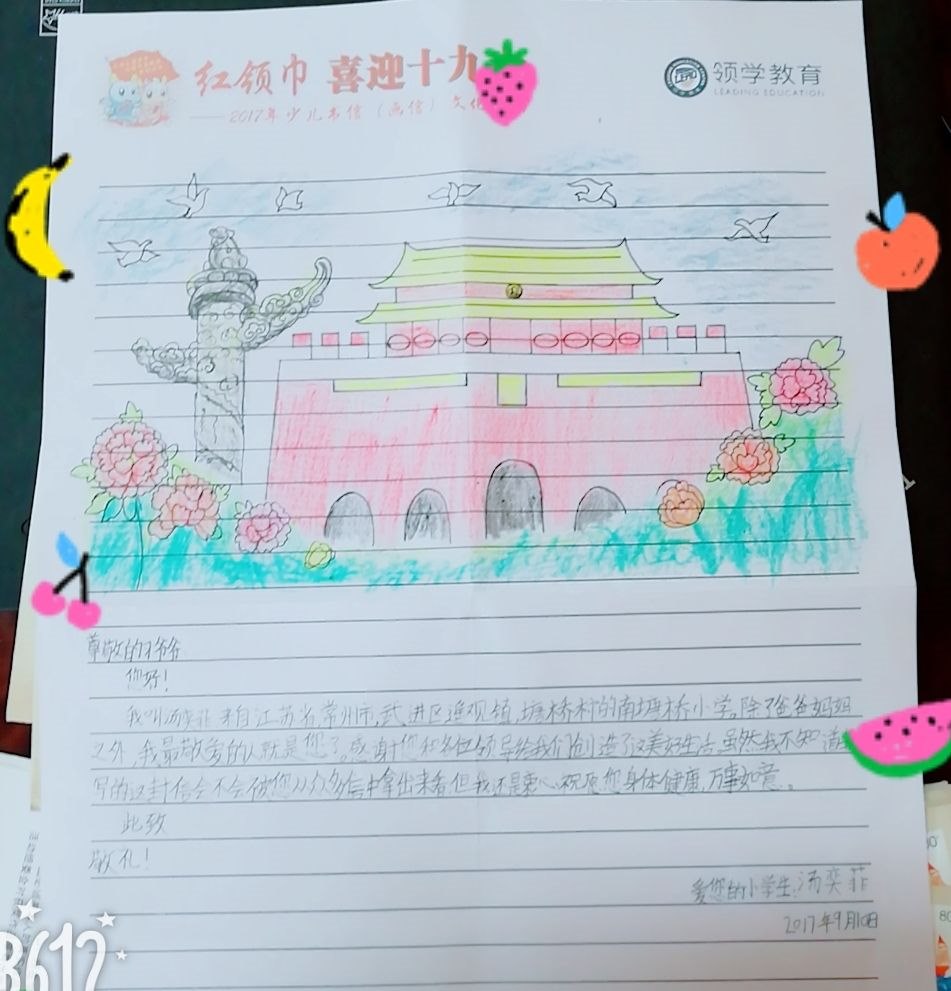 红领巾 喜迎十九
——2017年少儿书信（画信）文化
领学教育
LEADING EDUCATION
尊敬的爷爷
您好！
我叫汤奕菲 来自江苏省常州市,武进区遥观镇,塘桥村的南塘桥小学。除了爸爸妈妈
之外,我最敬爱的人就是您了。感谢您和各位领导给我们创造了这美好生活,虽然我不知道
写的这封信会不会被您从众多信中拿出来看但我还是衷心祝愿您身体健康,万事如意。
此致
敬礼！
爱您的小学生:汤奕菲
2017年9月10日
B612